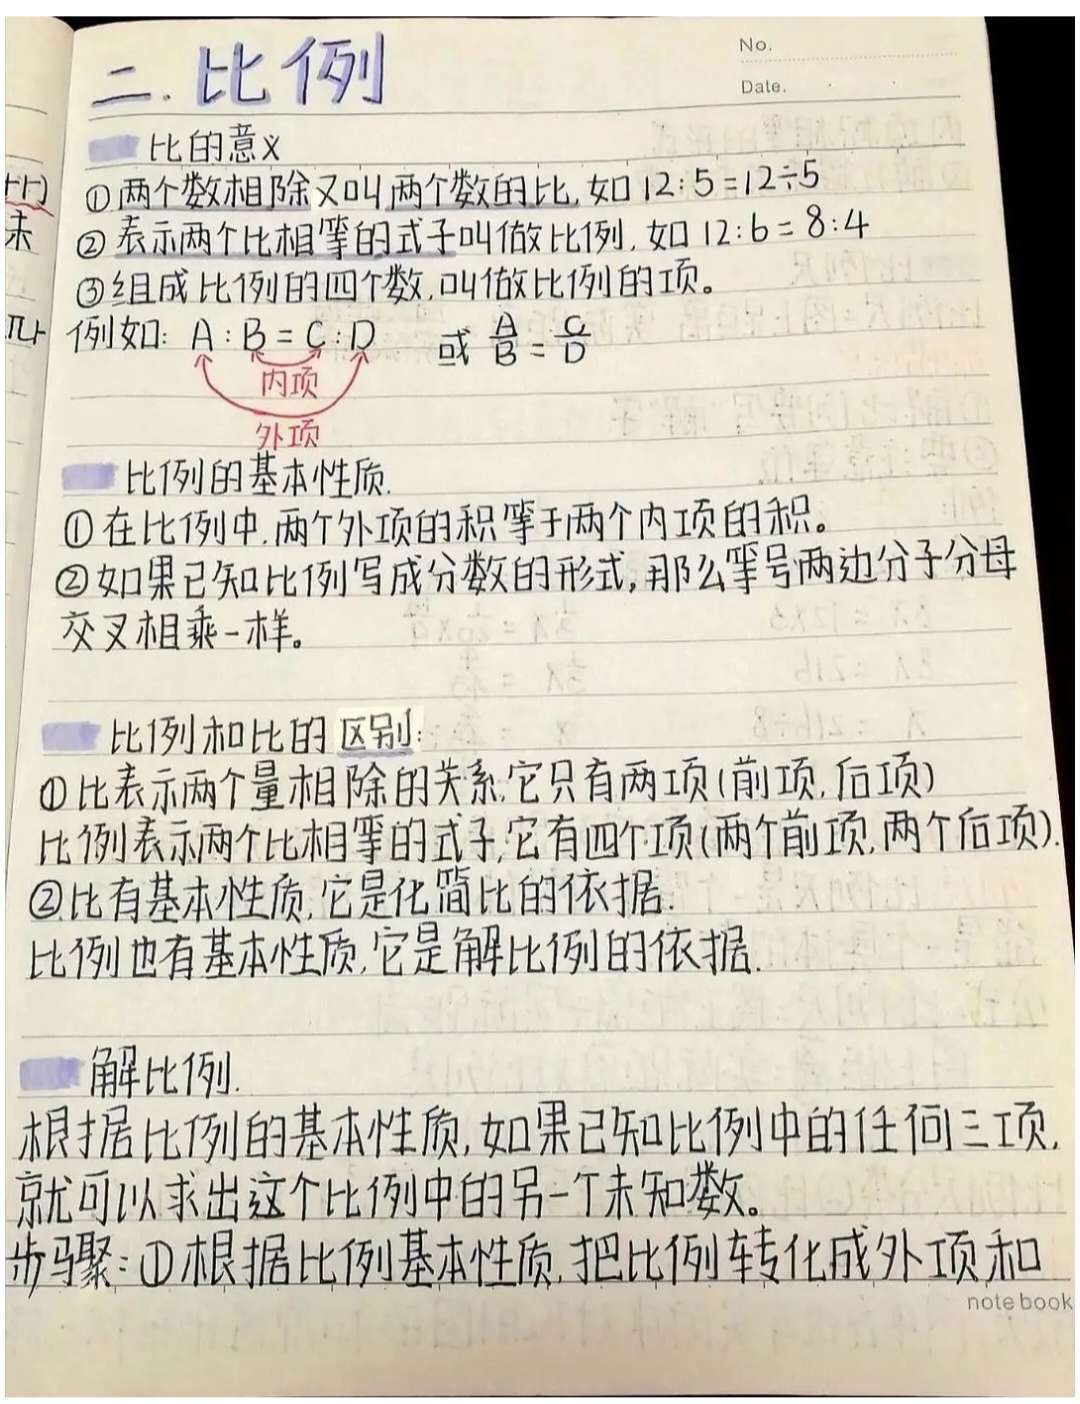 No.
Date.
二.比例
比的意义
①两个数相除又叫两个数的比,如12:5=12÷5
②表示两个比相等的式子叫做比例,如12:6=8:4
③组成比例的四个数,叫做比例的项。
例如: A:B=C:D 或 A/B=C/D
内项
外项
比例的基本性质.
①在比例中.两个外项的积等于两个内项的积。
②如果已知比例写成分数的形式,那么等号两边分子分母
交叉相乘一样。
比例和比的区别:
①比表示两个量相除的关系,它只有两项(前项,后项)
比例表示两个比相等的式子,它有四个项(两个前项,两个后项).
②比有基本性质,它是化简比的依据.
比例也有基本性质,它是解比例的依据.
解比例.
根据比例的基本性质,如果已知比例中的任何三项,
就可以求出这个比例中的另一个未知数。
步骤:①根据比例基本性质,把比例转化成外项和
note book